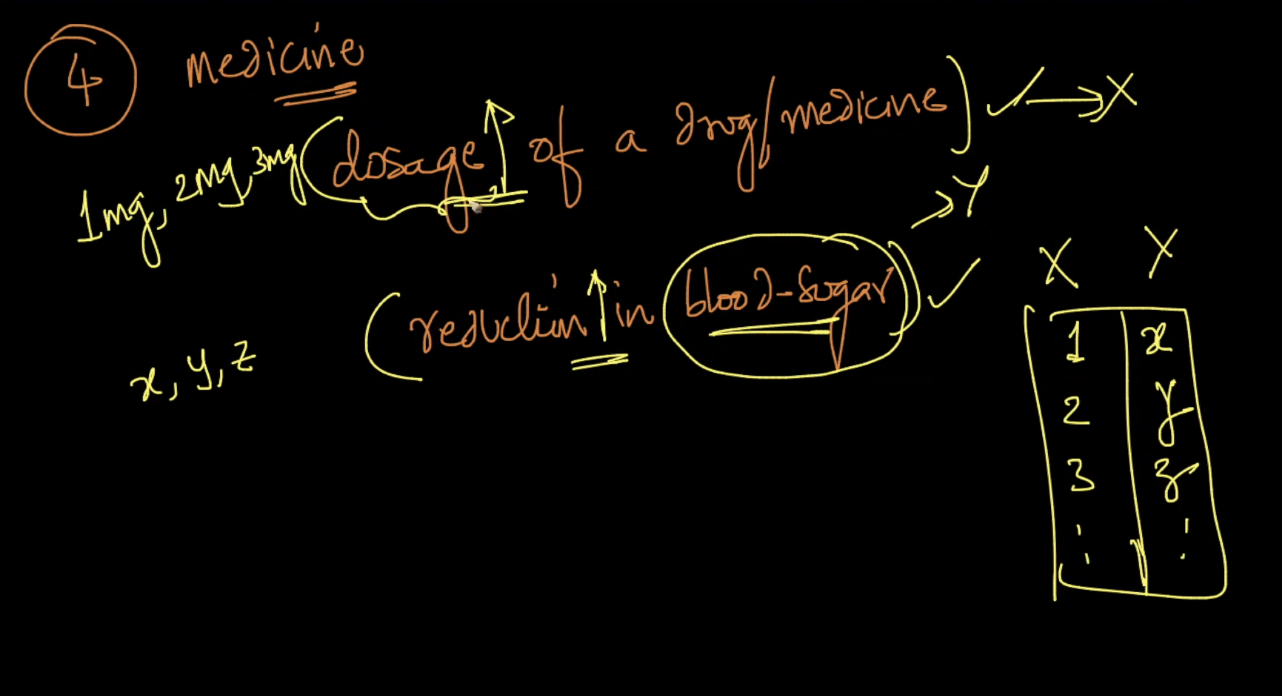 4 medicine
1mg, 2mg, 3mg (dosage ↑ of a drug/medicine) ✓ → X
→ Y
(reduction ↑ in (blood-sugar)) ✓
x, y, z
X Y
1 x
2 y
3 z
⋮ ⋮